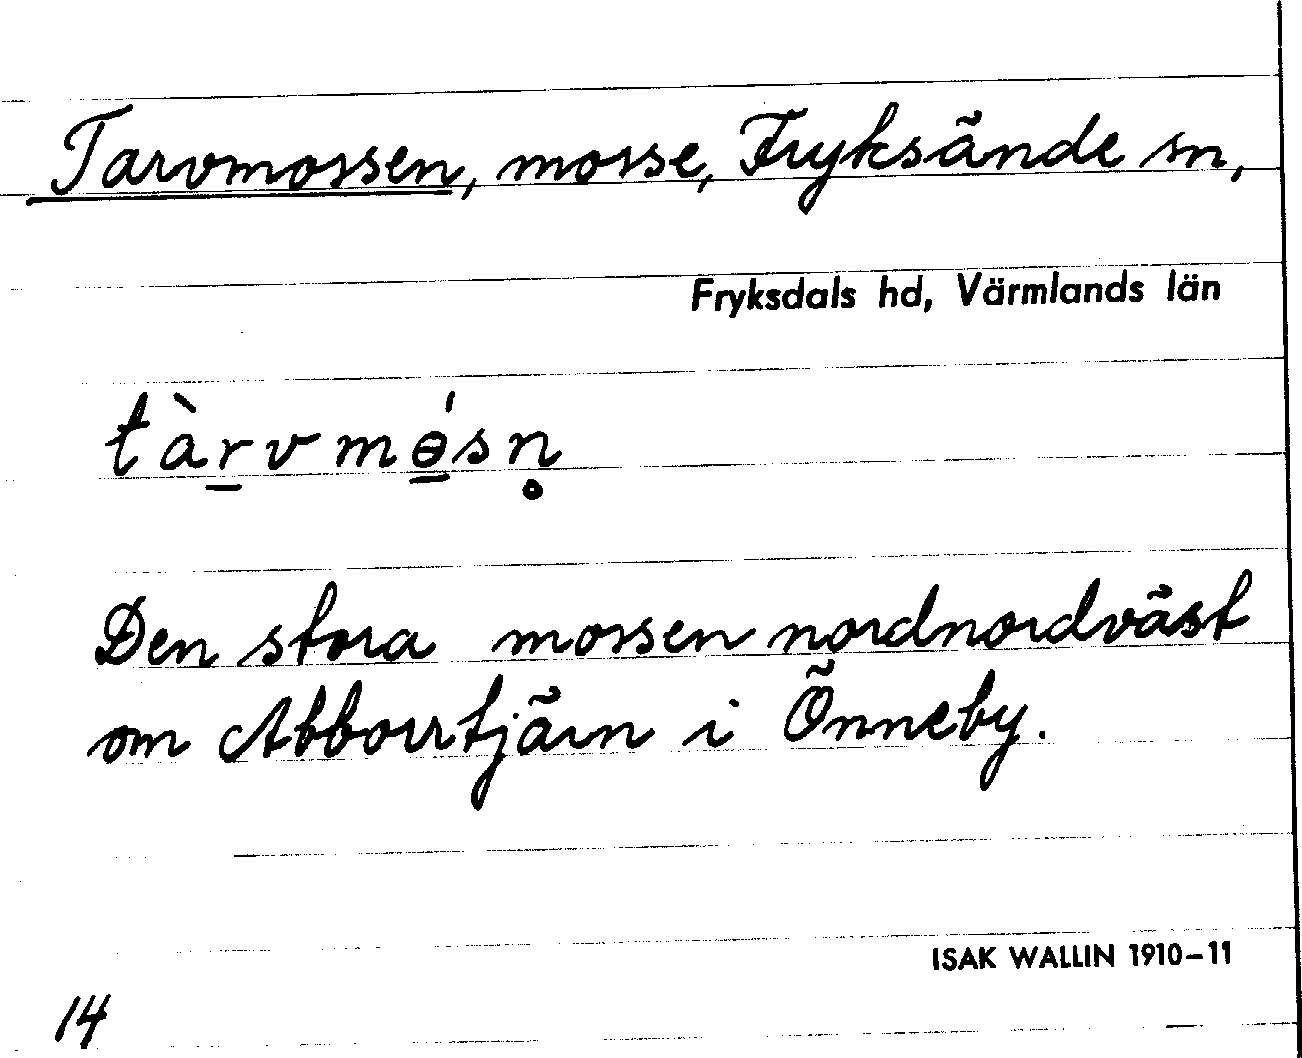 Tarvmossen, mosse, Fryksände sn,
Fryksdals hd, Värmlands län
tàr̠vmɵ̠́sn̥
Den stora mossen nordnordväst
om Abborrtjärn i Önneby.
ISAK WALLIN 1910–11
14